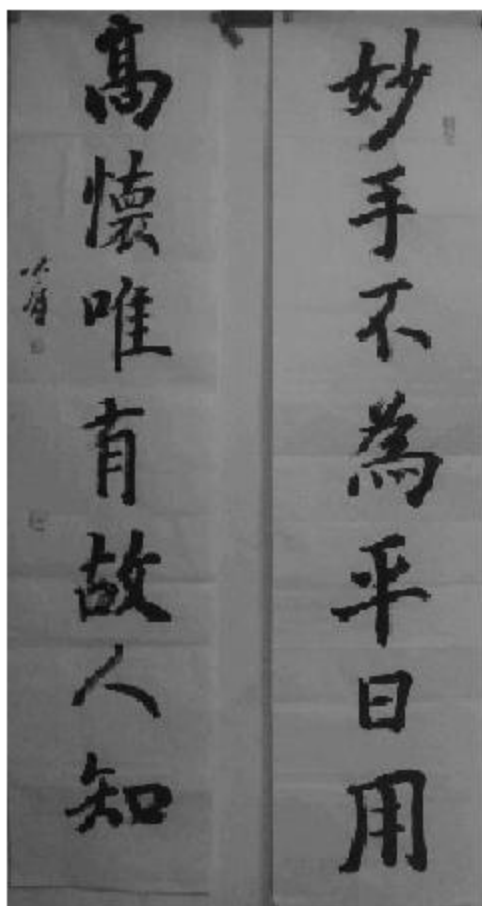 妙手不為平日用
高懷唯有故人知